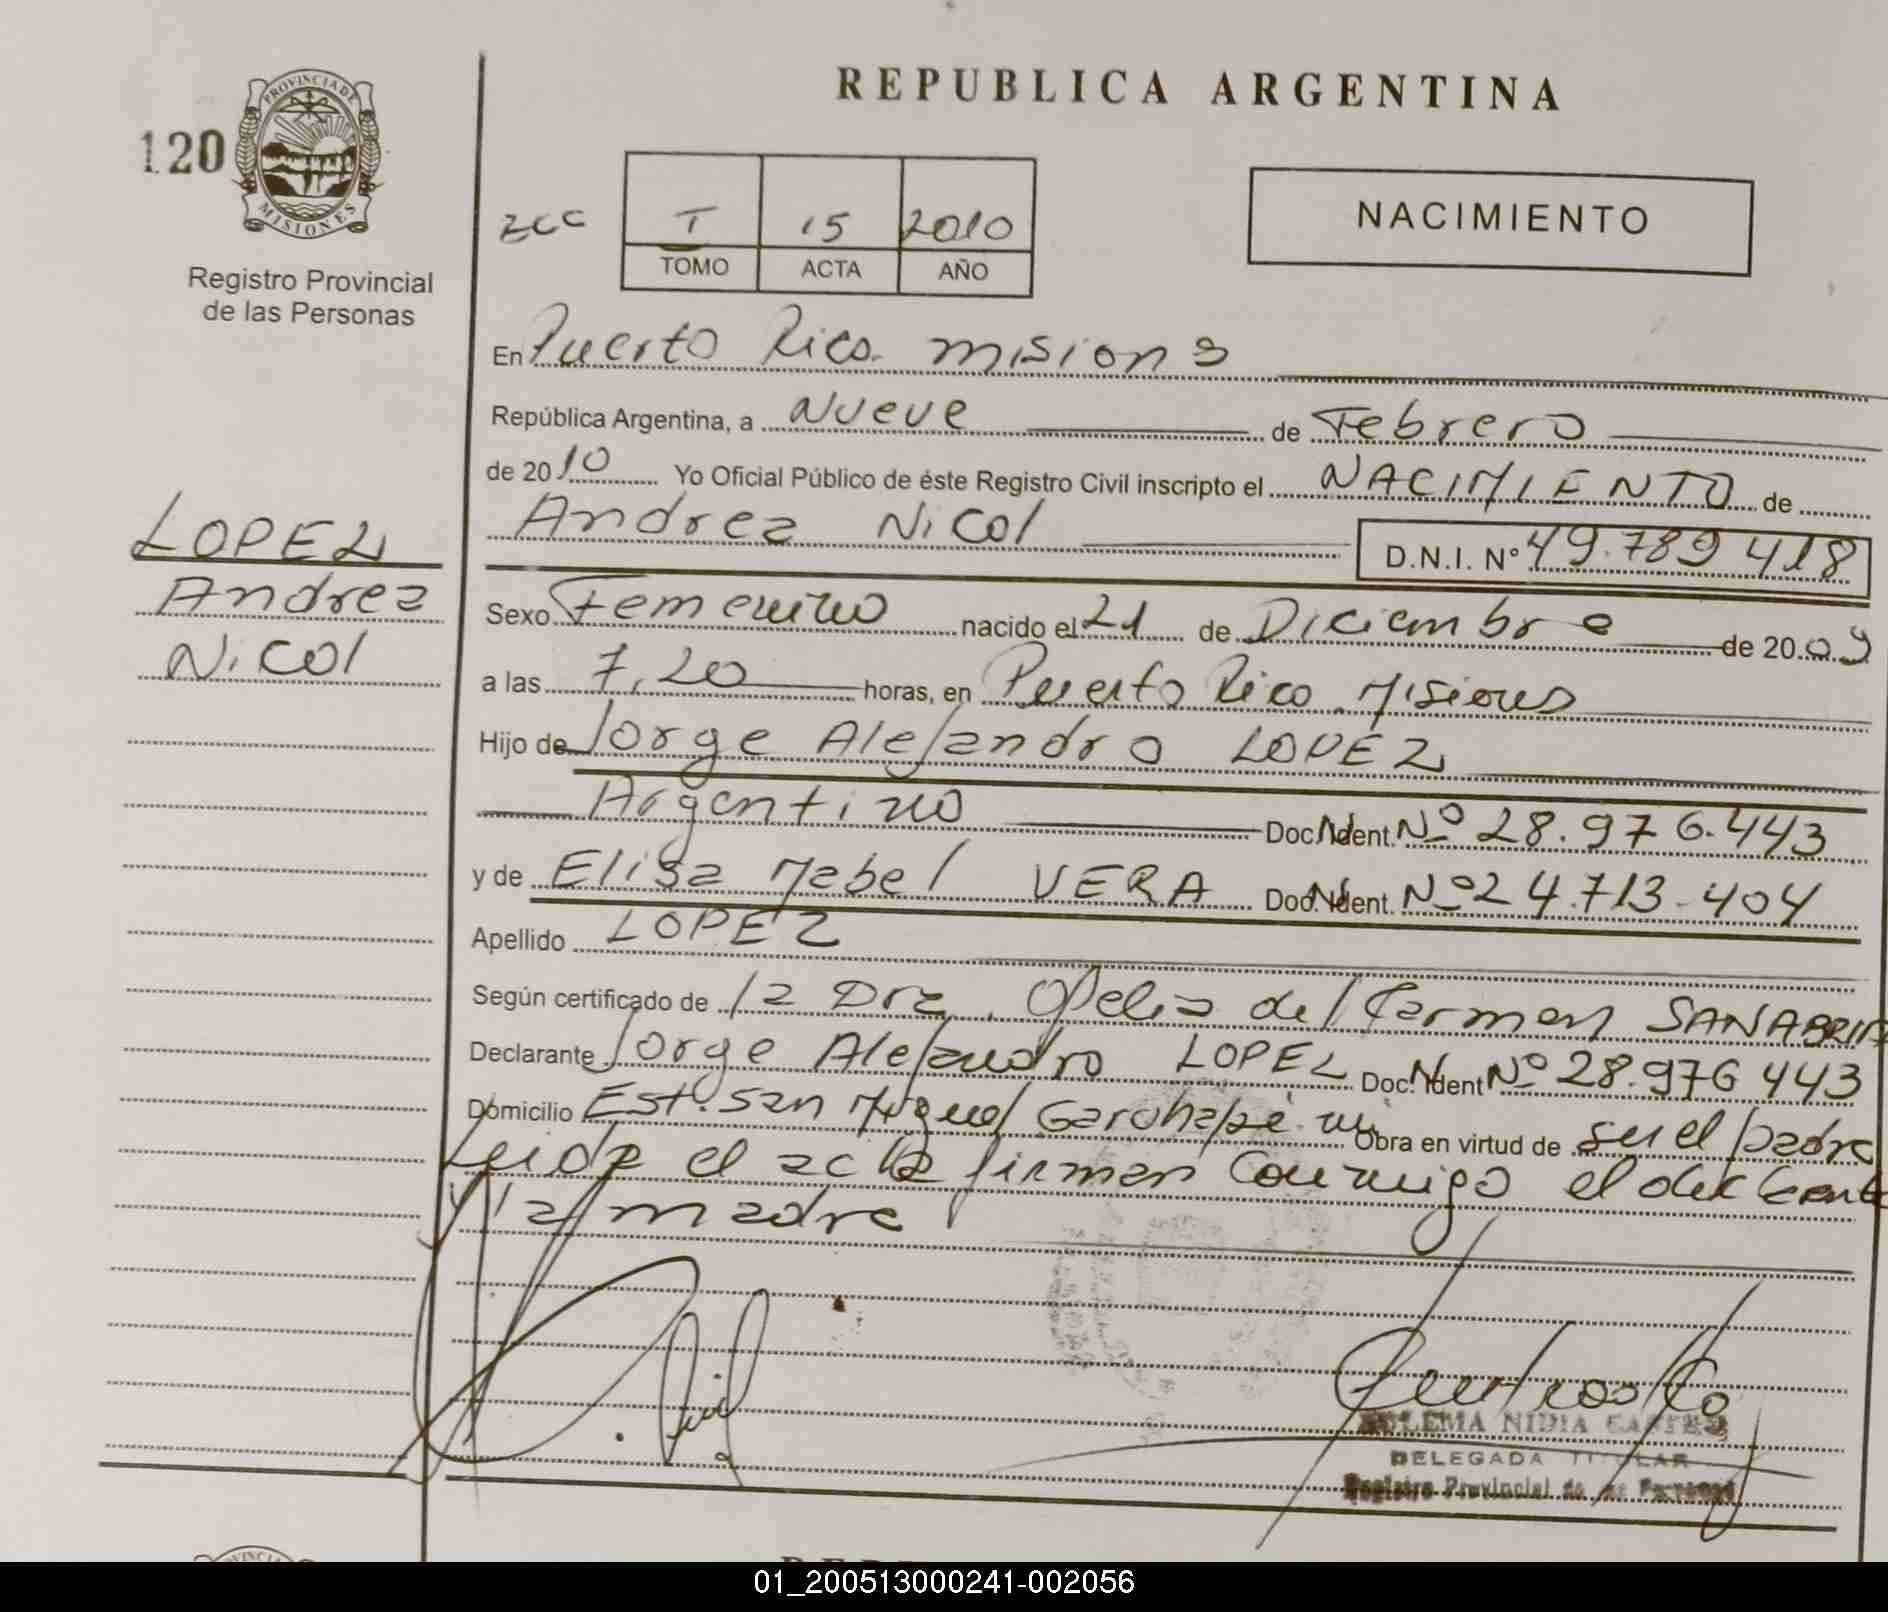 REPUBLICA ARGENTINA
120
PROVINCIA DE
MISIONES
Registro Provincial
de las Personas
T 15 2010
TOMO ACTA AÑO
NACIMIENTO
En Puerto Rico. Misiones
República Argentina, a Nueve de Febrero
de 2010 Yo Oficial Público de éste Registro Civil inscripto el NACIMIENTO de
Andrea Nicol D.N.I. Nº 49.789418
LOPEZ
Andrea
Nicol
Sexo Femenino nacido el 21 de Diciembre de 2009
a las 7,20 horas, en Puerto Rico. Misiones
Hijo de Jorge Alejandro LOPEZ
Argentino Doc. Ident. Nº 28.976.443
y de Elisa Mabel VERA Doc. Ident. Nº 24.713.404
Apellido LOPEZ
Según certificado de la Dra. Ofelia del Carmen SANABRIA
Declarante Jorge Alejandro LOPEZ Doc. Ident Nº 28.976443
Domicilio Est. San Miguel Garuhapé. Obra en virtud de ser el padre
Leida el acta firman conmigo el declarante
y la madre
NIDIA
DELEGADA TITULAR
Registro Provincial de las Personas
01_200513000241-002056